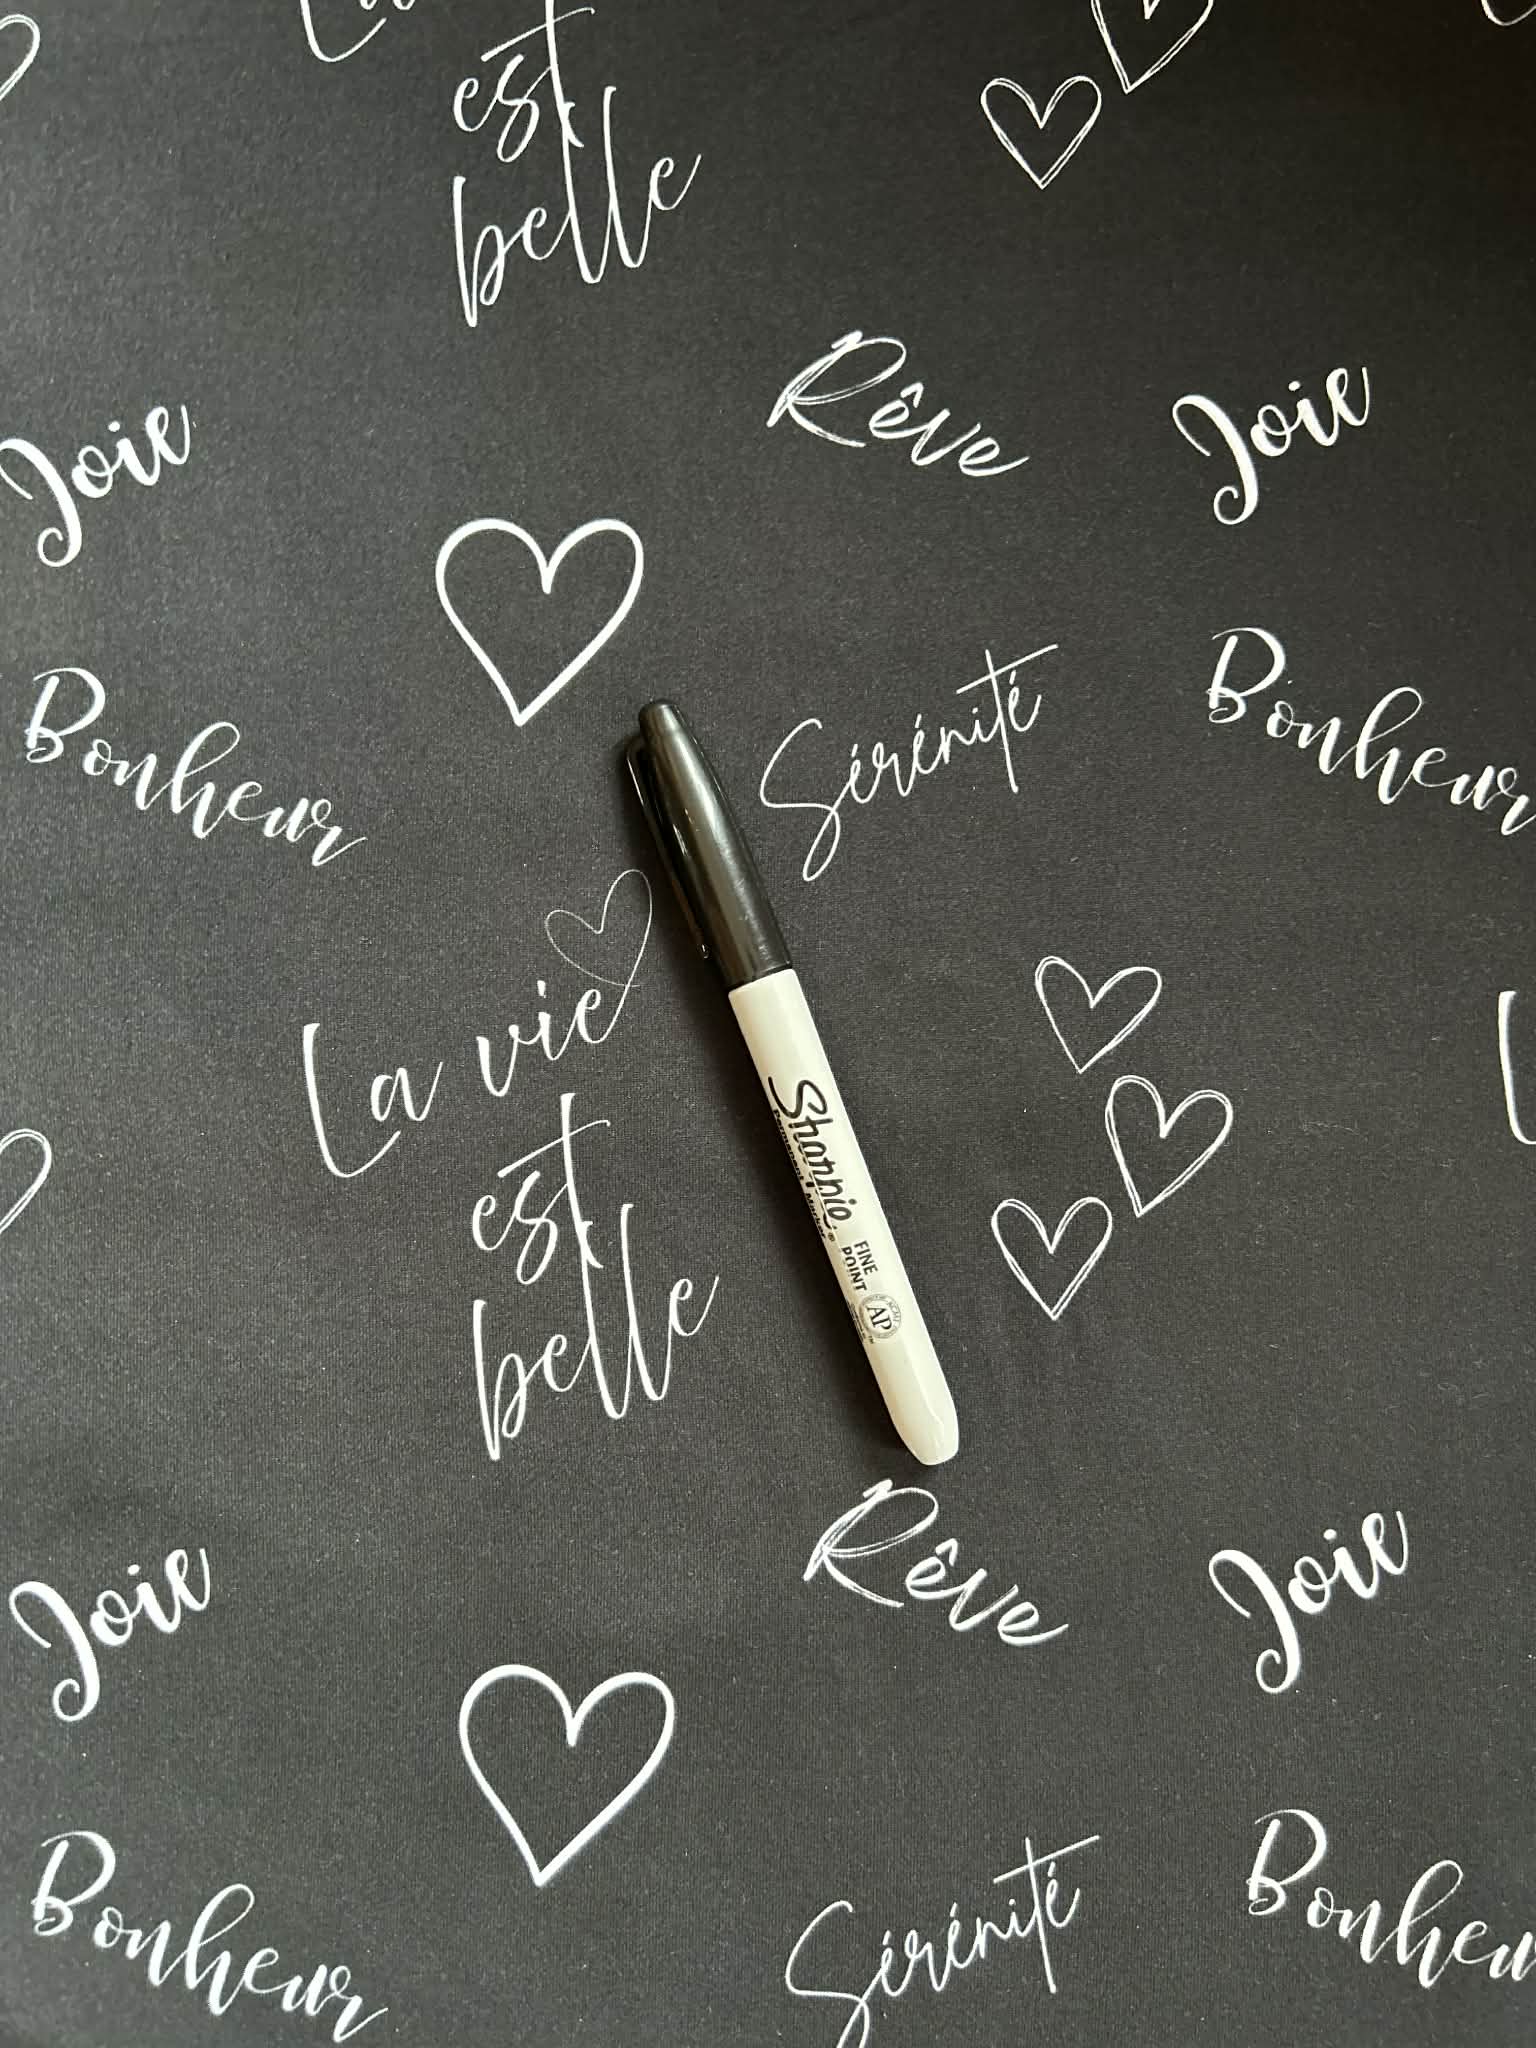 La
est
belle
Rêve
Joie
Joie
Bonheur
Sérénité
Bonheur
La vie
est
belle
Sharpie
Permanent Marker®
FINE
POINT
AP
Rêve
Joie
Joie
Bonheur
Sérénité
Bonheu